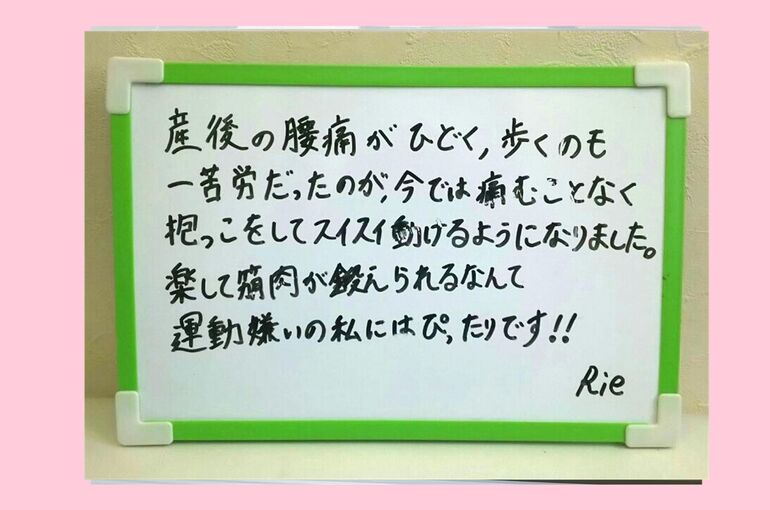 産後の腰痛がひどく,歩くのも
一苦労だったのが,今では痛むことなく
抱っこをしてスイスイ動けるようになりました。
楽して筋肉が鍛えられるなんて
運動嫌いの私にはぴったりです!!
Rie